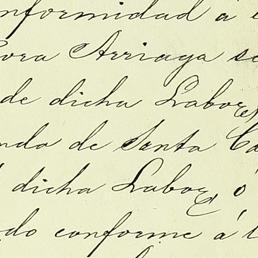 nformidad á
ora Arriaga se
de dicha Labor
nda de Santa Ca
dicha Labor, ó
do conforme á l